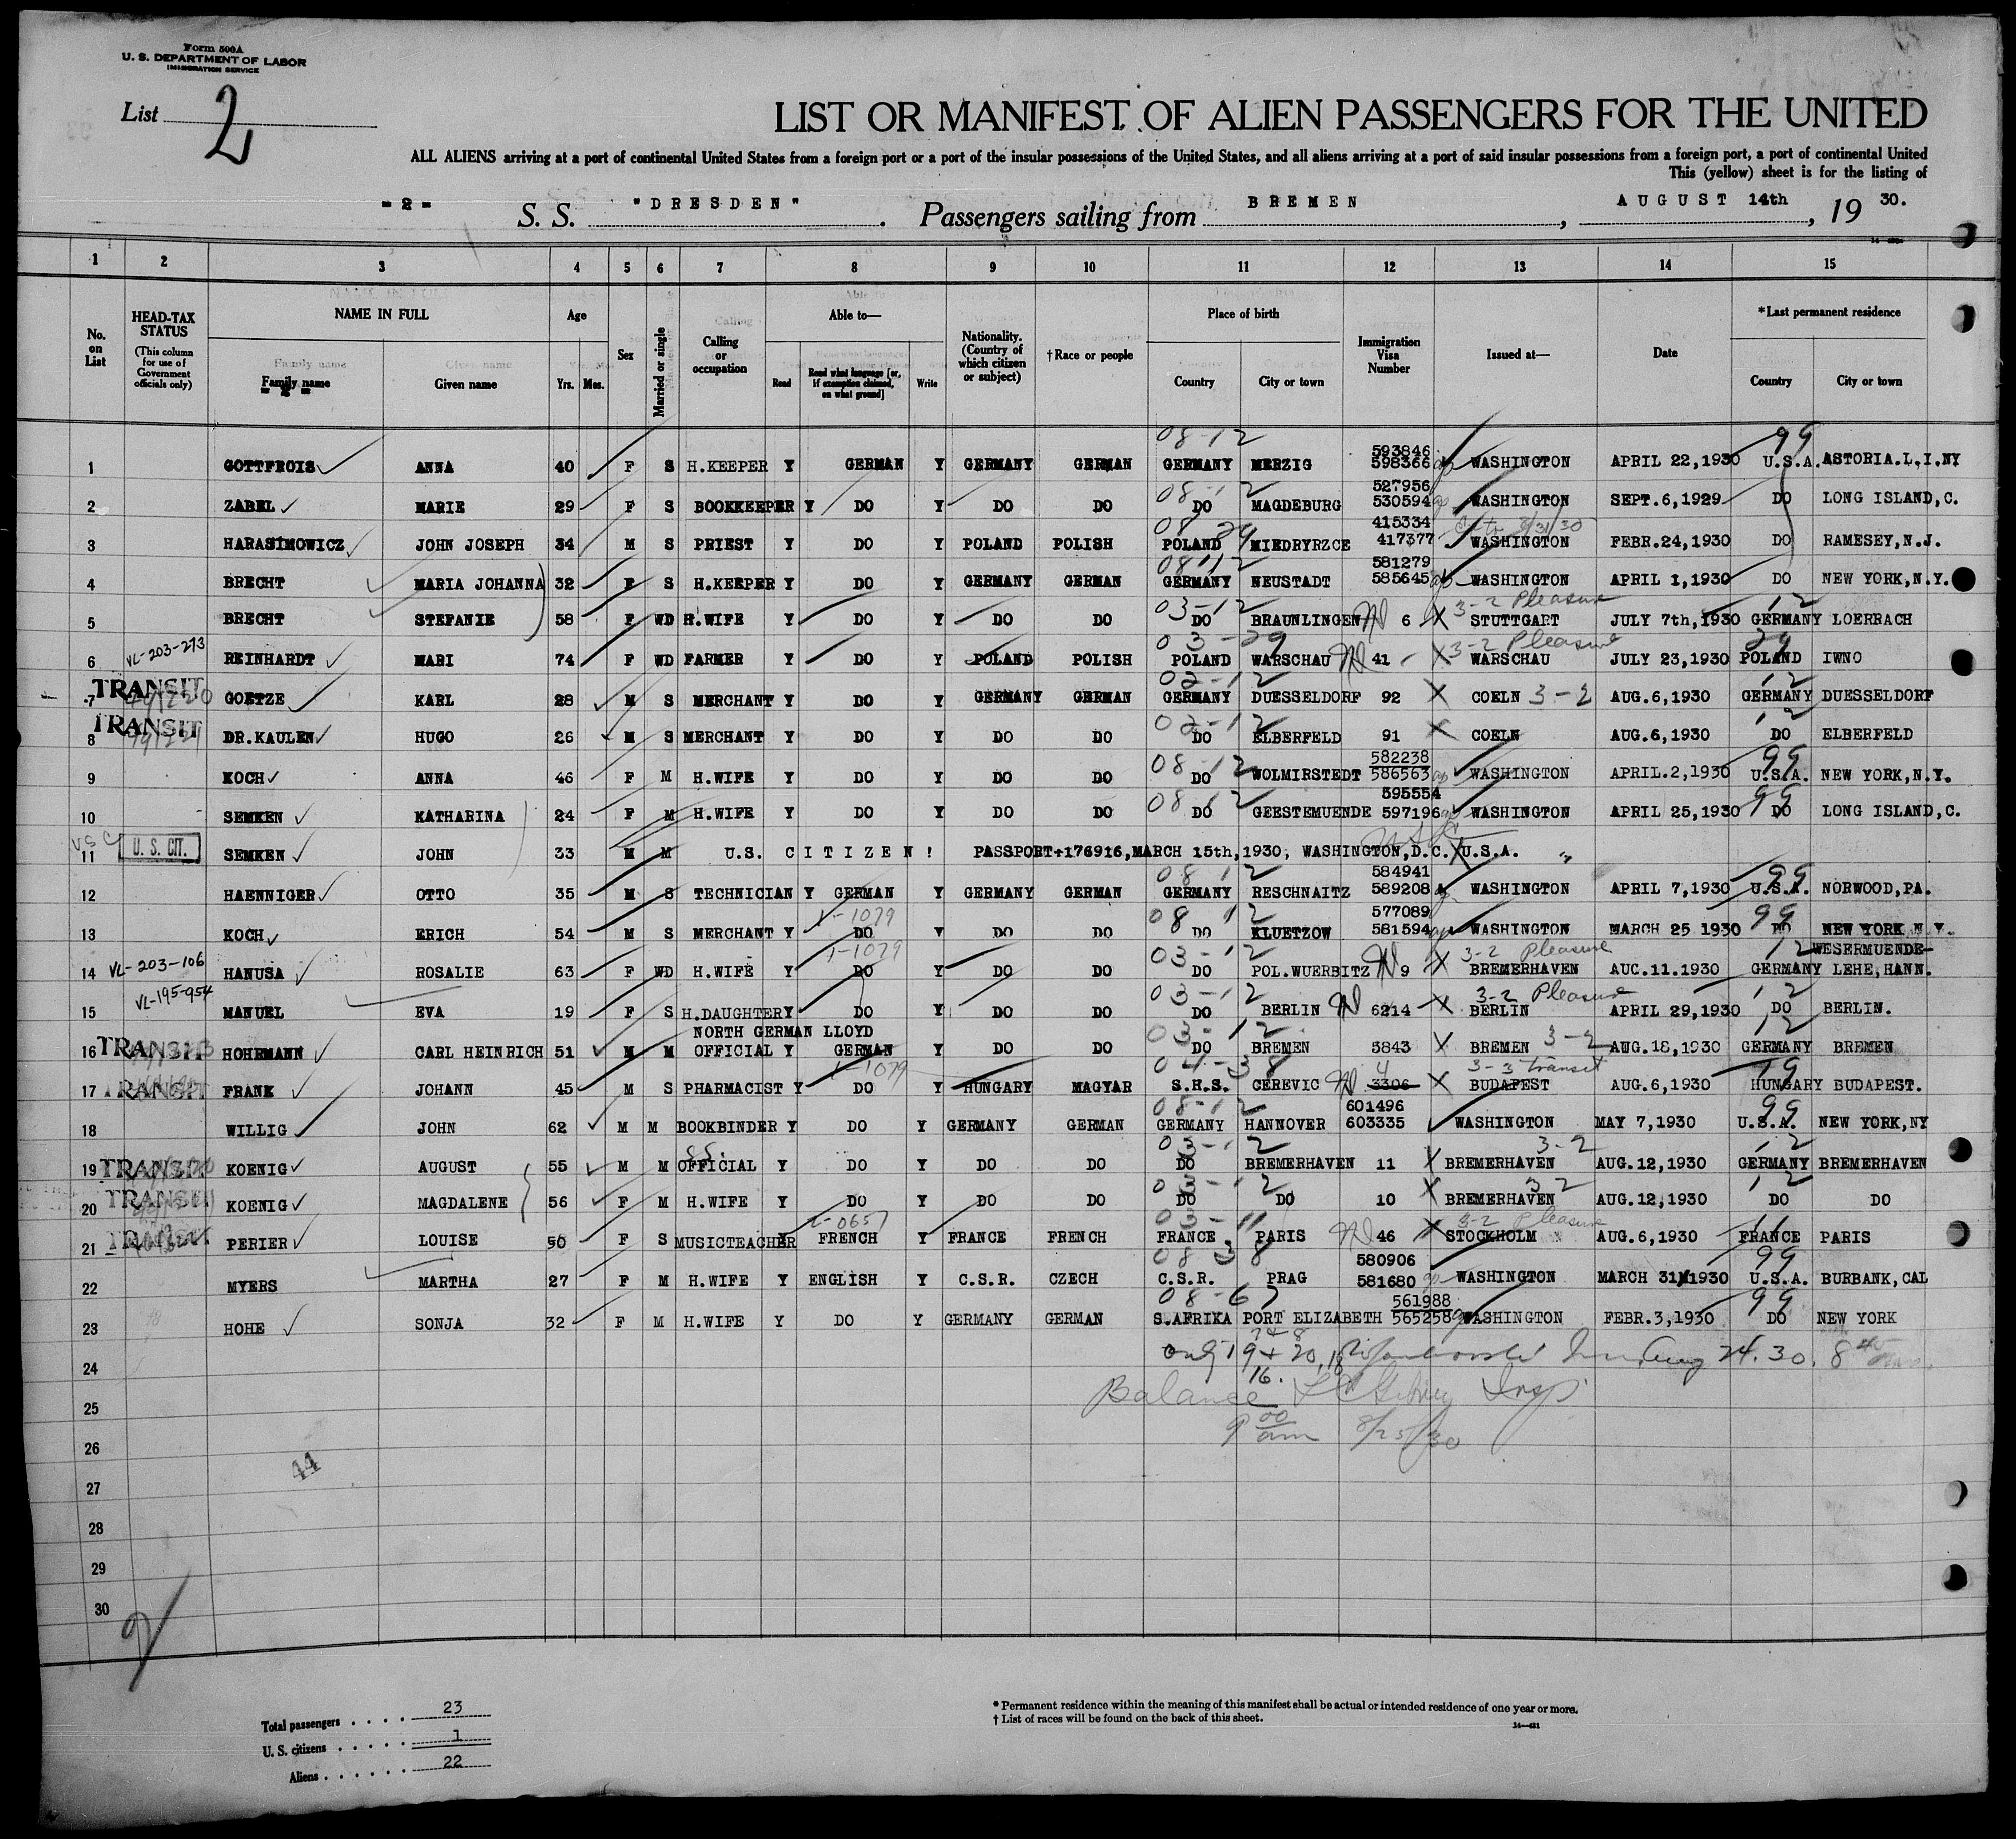 Form 500A
U. S. DEPARTMENT OF LABOR
IMMIGRATION SERVICE
List 2
LIST OR MANIFEST OF ALIEN PASSENGERS FOR THE UNITED
ALL ALIENS arriving at a port of continental United States from a foreign port or a port of the insular possessions of the United States, and all aliens arriving at a port of said insular possessions from a foreign port, a port of continental United
This (yellow) sheet is for the listing of
- 2 - S. S. "DRESDEN". Passengers sailing from BREMEN, AUGUST 14th, 19 30.
1 2 3 4 5 6 7 8 9 10 11 12 13 14 15
No. on List
HEAD-TAX STATUS (This column for use of Government officials only)
NAME IN FULL
Family name
- 2 -
Given name
Age
Yrs. Mos.
Sex
Married or single
Calling or occupation
Able to—
Read
Read what language [or, if exemption claimed, on what ground]
Write
Nationality. (Country of which citizen or subject)
†Race or people
Place of birth
Country
City or town
Immigration Visa Number
Issued at—
Date
*Last permanent residence
Country
City or town
08-12 593846 99
1 GOTTFROIS ANNA 40 F S H.KEEPER Y GERMAN Y GERMANY GERMAN GERMANY MERZIG 598366 WASHINGTON APRIL 22,1930 U.S.A. ASTORIA.L.I.NY
08-12 527956
2 ZABEL MARIE 29 F S BOOKKEEPER Y DO Y DO DO DO MAGDEBURG 530594 WASHINGTON SEPT.6,1929 DO LONG ISLAND,C.
08 29 415334 8/31/30
3 HARASIMOWICZ JOHN JOSEPH 34 M S PRIEST Y DO Y POLAND POLISH POLAND MIEDRYRZCE 417377 WASHINGTON FEBR.24,1930 DO RAMESEY,N.J.
08-12 581279
4 BRECHT MARIA JOHANNA 32 F S H.KEEPER Y DO Y GERMANY GERMAN GERMANY NEUSTADT 585645 WASHINGTON APRIL 1,1930 DO NEW YORK,N.Y.
03-12 3-2 Pleasure 12
5 BRECHT STEFANIE 58 F WD H.WIFE Y DO Y DO DO DO BRAUNLINGEN 6 STUTTGART JULY 7th,1930 GERMANY LOERRACH
VL-203-273 03-29 3-2 Pleasure 29
6 REINHARDT MARI 74 F WD FARMER Y DO Y POLAND POLISH POLAND WARSCHAU 41 WARSCHAU JULY 23,1930 POLAND IWNO
TRANSIT 02-12 12
7 GOETZE KARL 28 M S MERCHANT Y DO Y GERMANY GERMAN GERMANY DUESSELDORF 92 COELN 3-2 AUG.6,1930 GERMANY DUESSELDORF
TRANSIT 02-12 12
8 DR.KAULEN HUGO 26 M S MERCHANT Y DO Y DO DO DO ELBERFELD 91 COELN AUG.6,1930 DO ELBERFELD
08-12 582238 99
9 KOCH ANNA 46 F M H.WIFE Y DO Y DO DO DO WOLMIRSTEDT 586563 WASHINGTON APRIL.2,1930 U.S.A. NEW YORK,N.Y.
08-12 595554 99
10 SEMKEN KATHARINA 24 F M H.WIFE Y DO Y DO DO DO GEESTEMUENDE 597196 WASHINGTON APRIL 25,1930 DO LONG ISLAND,C.
USC
11 U. S. CIT. SEMKEN JOHN 33 M M U.S. CITIZEN! PASSPORT+176916,MARCH 15th,1930, WASHINGTON,D.C. U.S.A.
08-12 584941 99
12 HAENNIGER OTTO 35 M S TECHNICIAN Y GERMAN Y GERMANY GERMAN GERMANY RESCHNAITZ 589208 WASHINGTON APRIL 7,1930 U.S.A. NORWOOD,PA.
1-1079 08-12 577089 99
13 KOCH ERICH 54 M S MERCHANT Y DO Y DO DO DO KLUETZOW 581594 WASHINGTON MARCH 25 1930 DO NEW YORK N.Y.
VL-203-106 1-1079 03-12 3-2 Pleasure 12 WESERMUENDE-
14 HANUSA ROSALIE 63 F WD H.WIFE Y DO Y DO DO DO POL.WUERBITZ 9 BREMERHAVEN AUG.11.1930 GERMANY LEHE,HANN.
VL-195-954 03-12 3-2 Pleasure 12
15 MANUEL EVA 19 F S H.DAUGHTER Y DO Y DO DO DO BERLIN 6214 BERLIN APRIL 29,1930 DO BERLIN.
TRANSIT NORTH GERMAN LLOYD 03-12 12
16 HOHRMANN CARL HEINRICH 51 M M OFFICIAL Y GERMAN Y DO DO DO BREMEN 5843 BREMEN 3-2 AUG.18,1930 GERMANY BREMEN
TRANSIT 1-1079 04-38 4 3-3 transit
17 FRANK JOHANN 45 M S PHARMACIST Y DO Y HUNGARY MAGYAR S.H.S. CEREVIC 3306 BUDAPEST AUG.6,1930 HUNGARY BUDAPEST.
08-12 601496 99
18 WILLIG JOHN 62 M M BOOKBINDER Y DO Y GERMANY GERMAN GERMANY HANNOVER 603335 WASHINGTON MAY 7,1930 U.S.A. NEW YORK,NY
TRANSIT S.S. 03-12 3-2 12
19 KOENIG AUGUST 55 M M OFFICIAL Y DO Y DO DO DO BREMERHAVEN 11 BREMERHAVEN AUG.12,1930 GERMANY BREMERHAVEN
TRANSIT 03-12 3 2 12
20 KOENIG MAGDALENE 56 F M H.WIFE Y DO Y DO DO DO DO 10 BREMERHAVEN AUG.12,1930 DO DO
TRANSIT 03-11 3-2 Pleasure 11
21 PERIER LOUISE 50 F S MUSICTEACHER Y FRENCH Y FRANCE FRENCH FRANCE PARIS 46 STOCKHOLM AUG.6,1930 FRANCE PARIS
08 38 580906 99
22 MYERS MARTHA 27 F M H.WIFE Y ENGLISH Y C.S.R. CZECH C.S.R. PRAG 581680 WASHINGTON MARCH 31,1930 U.S.A. BURBANK,CAL
08-67 561988 99
23 HOHE SONJA 32 F M H.WIFE Y DO Y GERMANY GERMAN S.AFRIKA PORT ELIZABETH 565258 WASHINGTON FEBR.3,1930 DO NEW YORK
7+8
24 only 19+20, 18 Aug 24.30. 8
16.
25 Balance Insp
26 9 00 am 8/25/30
44
27
28
29
30
Total passengers . . . . 23
U. S. citizens . . . . . 1
Aliens . . . . . . 22
* Permanent residence within the meaning of this manifest shall be actual or intended residence of one year or more.
† List of races will be found on the back of this sheet.
14—431